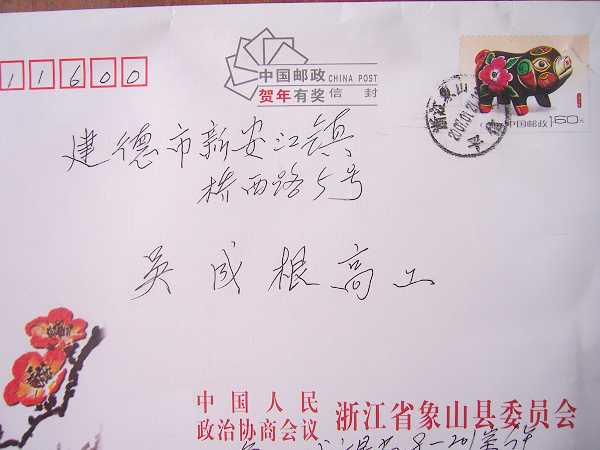 11600
中国邮政 CHINA POST
贺年有奖信封
浙江象山
2007.01.2
中国邮政 160分
建德市新安江镇
桥西路5号
吴成根高工
中国人民
政治协商会议
浙江省象山县委员会